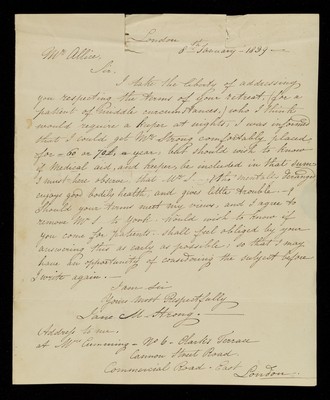 London
8th January - 1839 -
Mr Allis,
Sir,
I take the liberty of addressing
you respecting the terms of your retreat, (for a
patient of middle circumstances,) who I think
would require a keeper at nights; I was informed
that I could get Mr Strong comfortably placed
for - 60 or 70£, a year; but should wish to know
if Medical aid, and keeper, be included in that sum
I must here observe that Mr S - tho' mentally deranged
enjoys good bodily health, and gives little trouble -
Should your terms meet my views, and I agree to
remove Mr S. to York. Would wish to know if
you come for patients. Shall feel obliged by your
answering this as early as possible, so that I may
have an opportunity of considering the subject before
I write again. -
I am Sir
Yours Most Respectfully
Jane M. Strong. -
Address to me.
at Mrs Cumming - No 6 - Clarks Terrace
Cannon Street Road
Commercial Road - East
London -